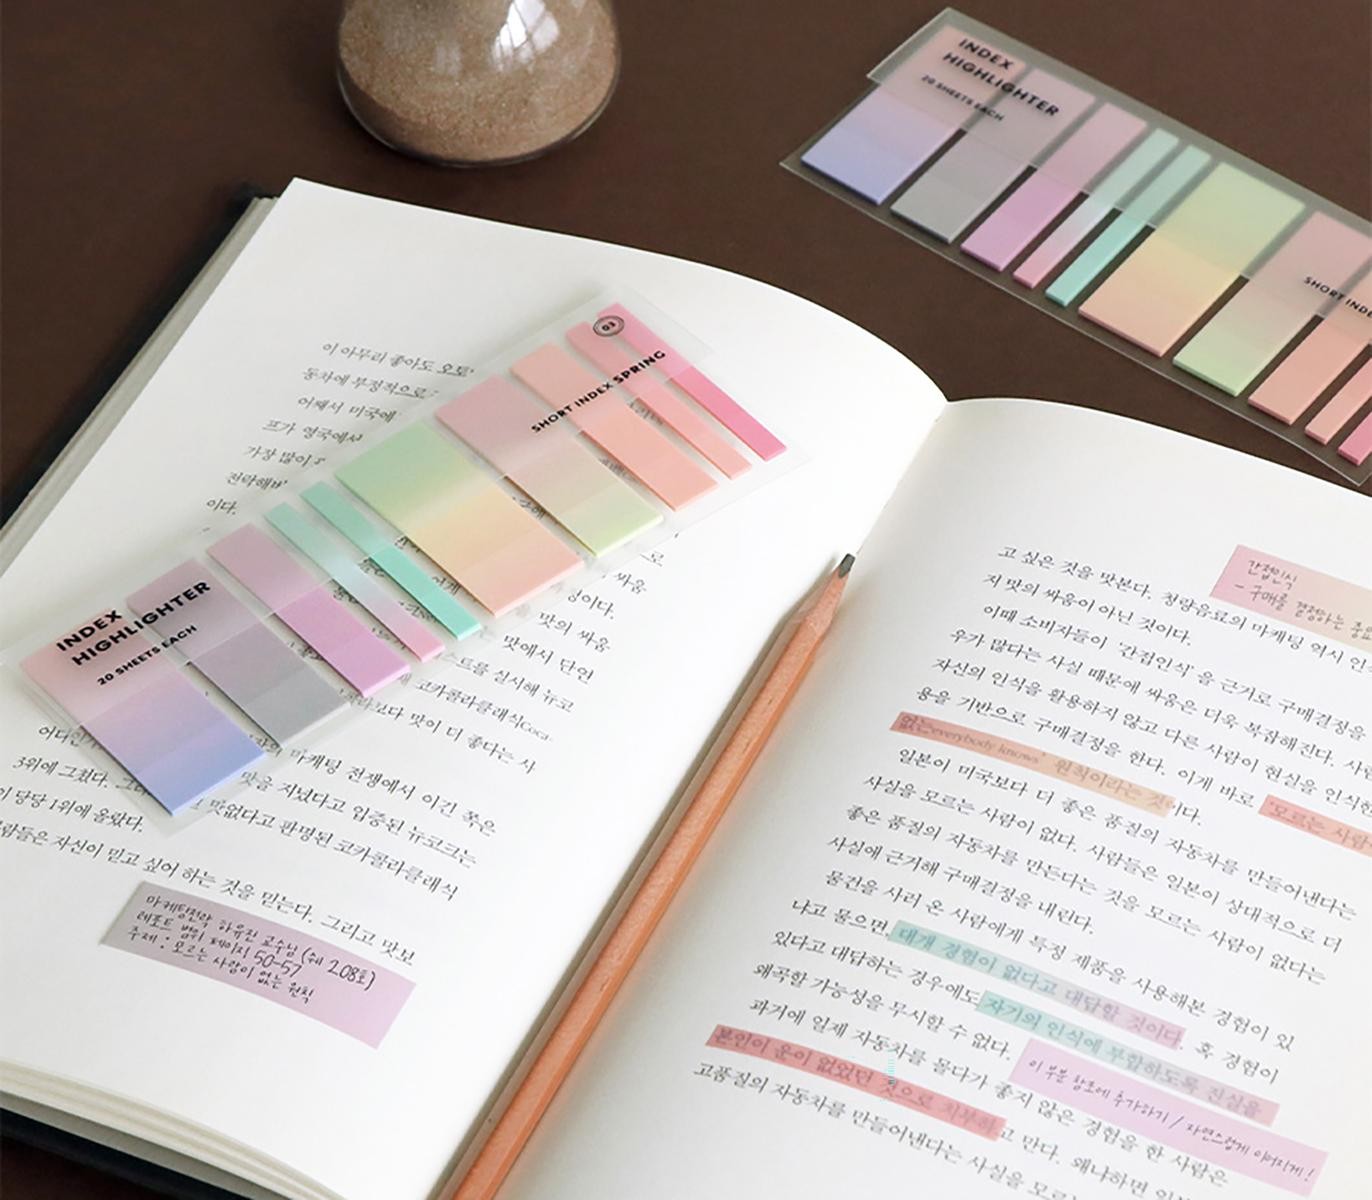 INDEX
HIGHLIGHTER
20 SHEETS EACH
SHORT INDE
INDEX
HIGHLIGHTER
20 SHEETS EACH
SHORT INDEX SPRING
03
이 아무리 좋아도 오토
동차에 부정적으로
어째서 미국에
프가 영국에서
가장 많이
전락해버
이다.
싸움
성이다.
맛의 싸움
맛에서 단연
스트를 실시해 뉴코
코카콜라클래식Coca-
보다 맛이 더 좋다는 사
마케팅 전쟁에서 이긴 쪽은
3위에 그쳤다.
맛을 지녔다고 입증된 뉴코크는
당당 1위에 올랐다.
맛없다고 판명된 코카콜라클래식
람들은 자신이 믿고 싶어 하는 것을 믿는다. 그리고 맛보
마케팅전략 하유진 교수님 (쉐 208호)
레포트 범위 페이지 50-57
주제 : 모르는 사람이 없는 원칙
고 싶은 것을 맛본다. 청량음료의 마케팅 역시 인
저 맛의 싸움이 아닌 것이다.
이때 소비자들이 '간접인식'을 근거로 구매결정을
우가 많다는 사실 때문에 싸움은 더욱 복잡해진다. 사람
자신의 인식을 활용하지 않고 다른 사람이 현실을 인식한
용을 기반으로 구매결정을 한다. 이게 바로 '모르는 사람
없는everybody knows' 원칙이라는 것이다.
일본이 미국보다 더 좋은 품질의 자동차를 만들어낸다는
사실을 모르는 사람이 없다. 사람들은 일본이 상대적으로 더
좋은 품질의 자동차를 만든다는 것을 모르는 사람이 없다는
사실에 근거해 구매결정을 내린다.
물건을 사러 온 사람에게 특정 제품을 사용해본 경험이 있
냐고 물으면 대개 경험이 없다고 대답할 것이다. 혹 경험이
있다고 대답하는 경우에도 자기의 인식에 부합하도록 진실을
왜곡할 가능성을 무시할 수 없다.
과거에 일제 자동차를 몰다가 좋지 않은 경험을 한 사람은
본인이 운이 없었던 것으로 치부하고 만다. 왜냐하면 일
고품질의 자동차를 만들어낸다는 사실을 모르
간접인식
- 구매를 결정하는 중요
이 부분 참조에 추가하기 / 자연스럽게 이어지게!